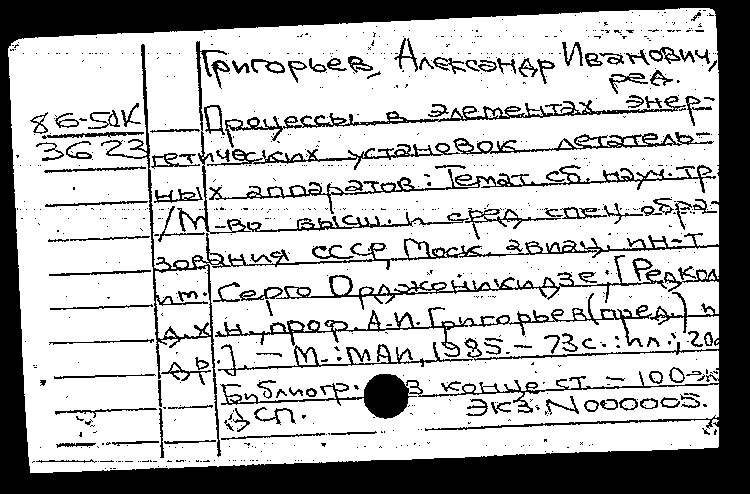 Григорьев, Александр Иванович,
ред.
86-51К
3623
Процессы в элементах энер-
гетических установок летатель-
ных аппаратов: Темат. сб. науч. тр.
/М-во высш. и сред. спец. обра-
зования СССР, Моск. авиац. ин-т
им. Серго Орджоникидзе; [Редкол.
д.х.н., проф. А.И. Григорьев (пред.) и
др.]. - М.: МАИ, 1985. - 73 с.: ил.; 20
Библиогр: в конце ст. - 100 эк
ДСП.
Экз. N000005.